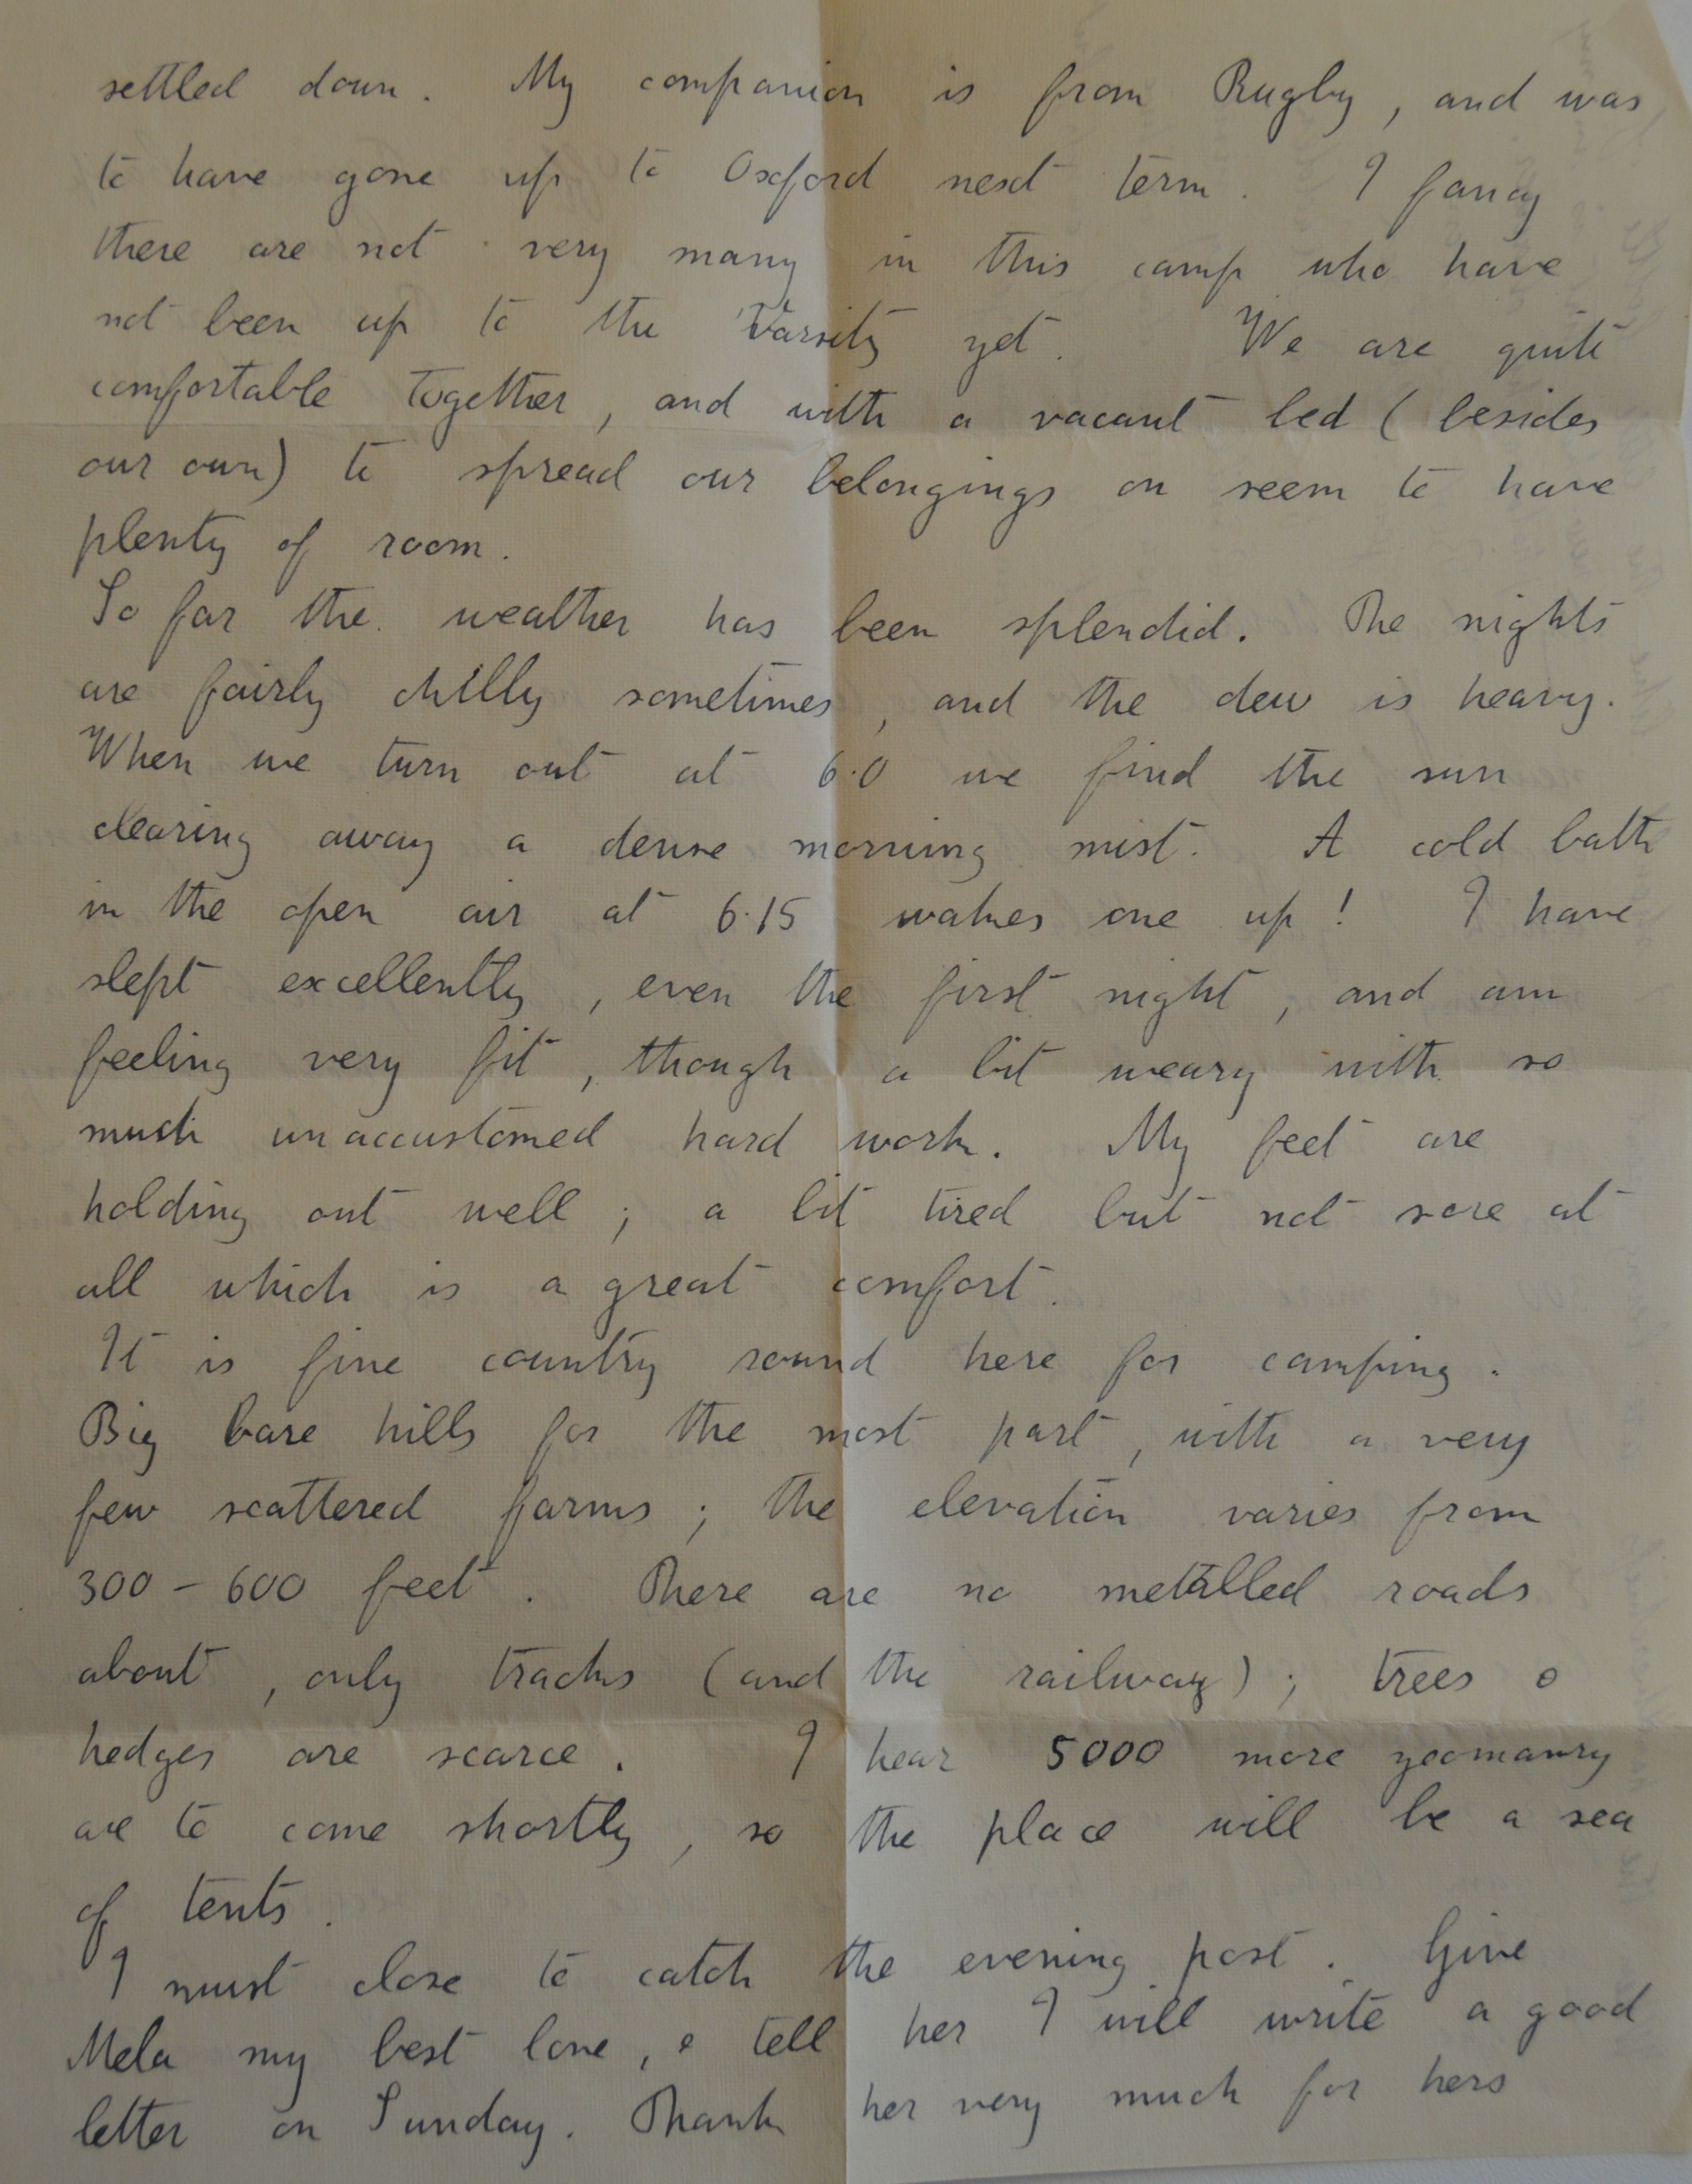 settled down. My companion is from Rugby, and was
to have gone up to Oxford next term. I fancy
there are not very many in this camp who have
not been up to the 'Varsity yet. We are quite
comfortable together, and with a vacant bed (besides
our own) to spread our belongings on seem to have
plenty of room.
So far the weather has been splendid. The nights
are fairly chilly sometimes, and the dew is heavy.
When we turn out at 6.0 we find the sun
clearing away a dense morning mist. A cold bath
in the open air at 6.15 wakes one up! I have
slept excellently, even the first night, and am
feeling very fit, though a bit weary with so
much unaccustomed hard work. My feet are
holding out well; a bit tired but not sore at
all which is a great comfort.
It is fine country round here for camping.
Big bare hills for the most part, with a very
few scattered farms; the elevation varies from
300 - 600 feet. There are no metalled roads
about, only tracks (and the railway); trees &
hedges are scarce. I hear 5000 more yeomanry
are to come shortly, so the place will be a sea
of tents.
I must close to catch the evening post. Give
Mela my best love, & tell her I will write a good
letter on Sunday. Thank her very much for hers